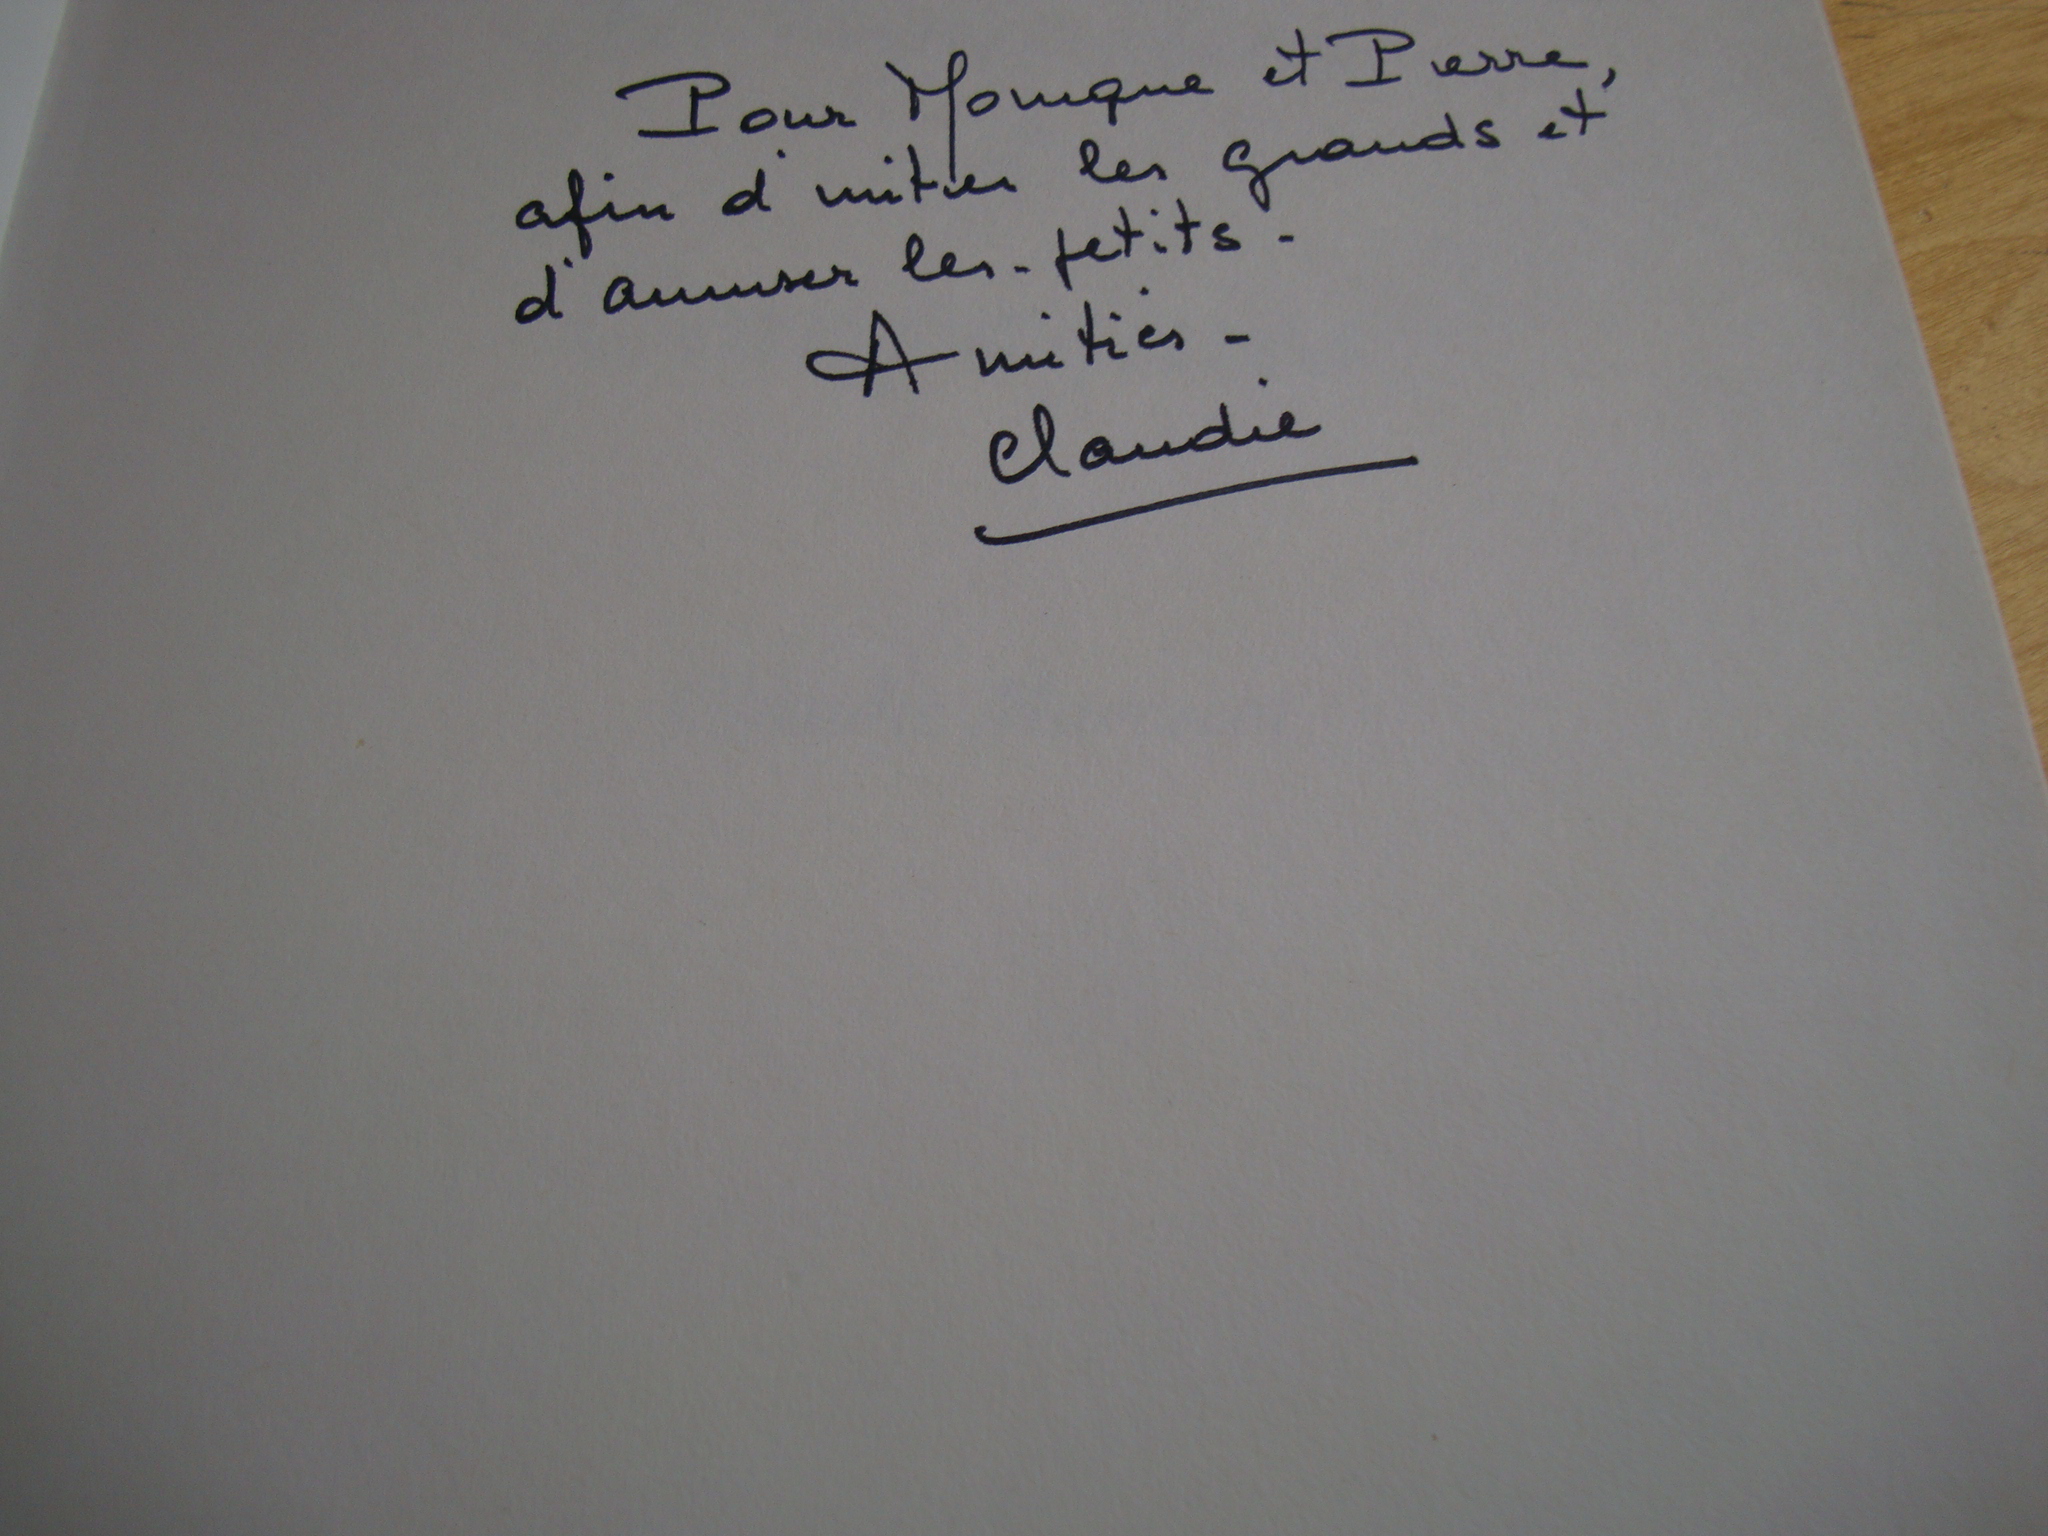 Pour Monique et Pierre,
afin d'initier les grands et
d'amuser les petits -
Amitiés -
Claudie